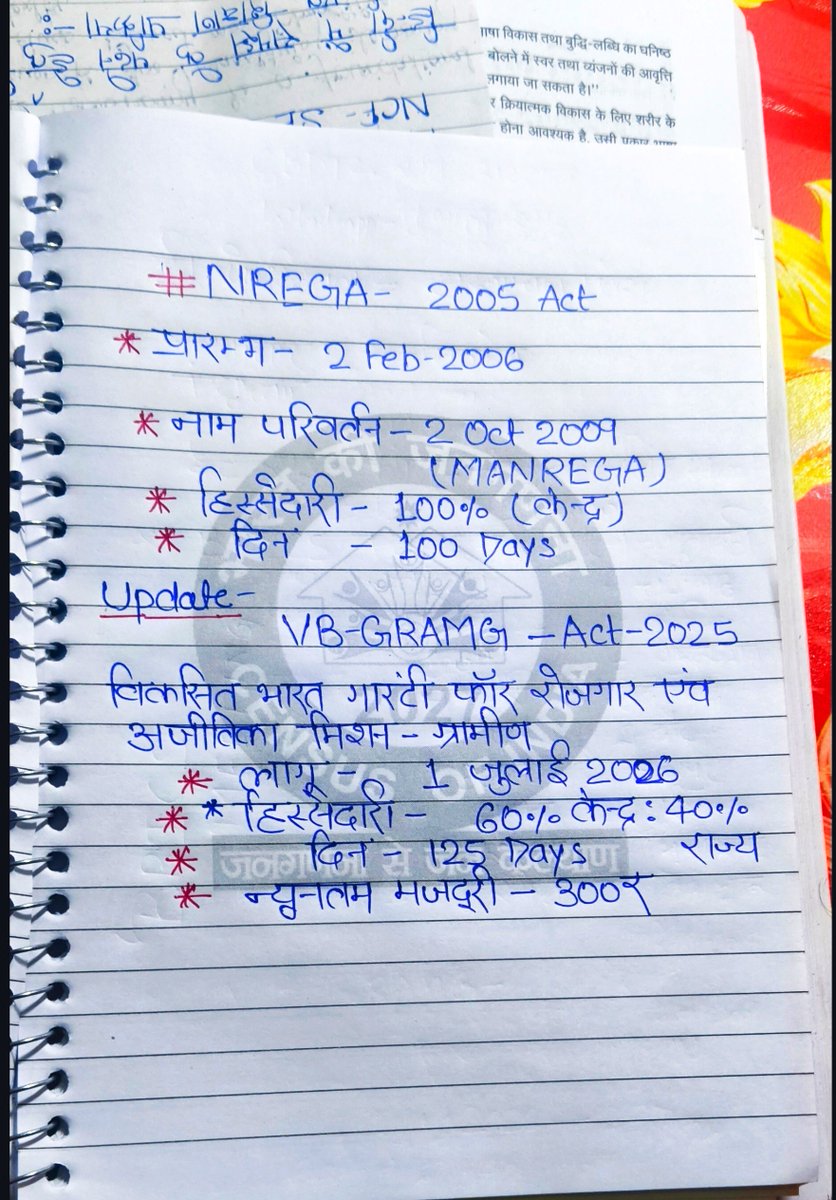 ाषा विकास तथा बुद्धि-लब्धि का घनिष्ठ
बोलने में स्वर तथा व्यंजनों की आवृत्ति
लगाया जा सकता है।"
र क्रियात्मक विकास के लिए शरीर के
होना आवश्यक है. उसी प्रकार भाषा
NCF-
# NREGA- 2005 Act
* प्रारम्भ- 2 Feb-2006
* नाम परिवर्तन - 2 Oct 2009
(MANREGA)
* हिस्सेदारी - 100% (केन्द्र)
* दिन - 100 Days
Update-
VB-GRAMG - Act-2025
विकसित भारत गारंटी फॉर रोजगार एंव
अजीविका मिशन - ग्रामीण
* लागू - 1 जुलाई 2026
* * हिस्सेदारी - 60% केन्द्र : 40%
राज्य
* दिन - 125 Days
* न्यूनतम मजदूरी - 300₹
CENSUS OF INDIA
जनगणना से जन कल्याण